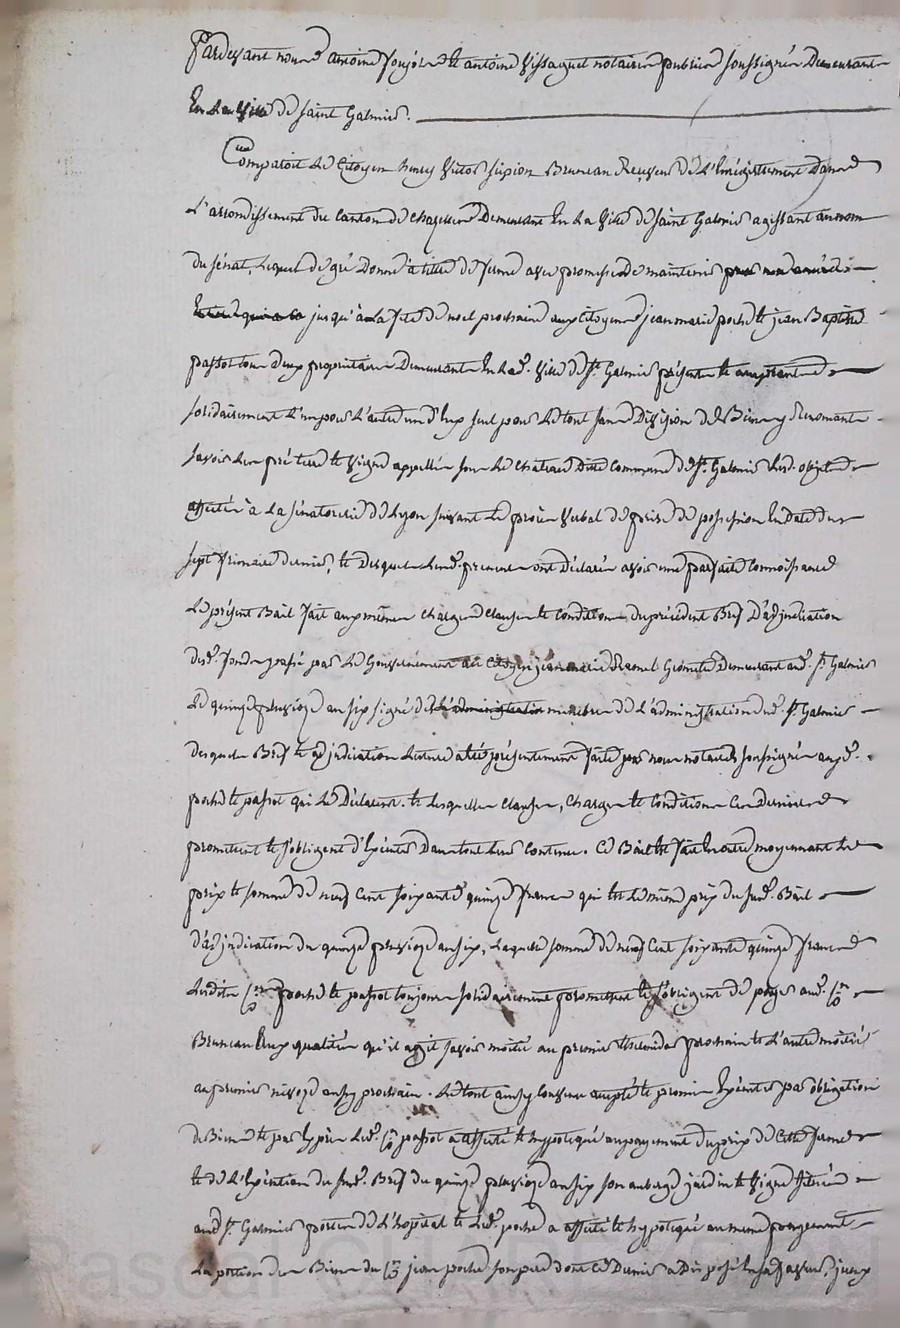 Pardevant nous Antoine et Antoine Vissaguet notaires publics soussignés Demeurants
En La Ville de Saint Galmier.
Comparoit Le Citoyen henry Victor Sipion Bruneau Receveur de L'Enregistrement Dans
L'arrondissement du Canton de Chazelles Demeurant En La Ville de Saint Galmier agissant au nom
du Sénat, Lequel de gré Donne à titre de ferme avec promesse de maintenir
jusqu'à La fête de noel prochaine aux Citoyens jean marie poche et jean Baptiste
passot tous Deux proprietaires Demeurants En Lad. Ville de St. Galmier présents et acceptants
solidairement L'un pour L'autre un d'Eux seul pour Le tout sans Division de Biens y Renonçants
savoir Les pré terre et Vigne appellés sous Le Chateau Dite Commune de St. Galmier Lesd. objets
affectés à La sénatorerie de Lyon suivant Le procès Verbal de prise de possession En date du
sept frimaire dernier, et Desquels Lesd. preneurs ont déclaré avoir une parfaite Connoissance
Le présent Bail fait aux mêmes Charges Clauses et Conditions du précédent Bref D'adjudication
desd. fonds passé par Le Gouvernement au Citoyen jean marie Géomètre Demeurant aud. St. Galmier
Le quinze pluviose an six signé des membres de L'administration dud. St. Galmier
desquels Bref et adjudication Lecture a été présentement faite par nous notaires soussignés auxd.
poche et passot qui Le Déclarent. et Lesquelles Clauses, Charges et Conditions Ces Derniers
promettent et s'obligent d'Exécuter Dans tout Leur Contenu. Ce Bail Est fait En outre moyennant Le
prix et somme de neuf Cent soixante quinze francs qui Est Le même prix du susd. Bail
d'adjudication du quinze pluviose an six, Laquelle somme de neuf Cent soixante quinze francs
Lesdits Cens poche et passot toujours solidairement promettent et s'obligent de payer aud. Cen
Bruneau Eux qualités qu'il agit savoir moitié au premier thermidor prochain et L'autre moitié
au premier nivose an prochain. Le tout ainsy Convenu accepté et promis Exécuter par obligation
de Biens et par Exprès Led. Cen passot a affecté et hypotéqué au payement du prix de Cette ferme
et de L'Exécution du susd. Bref du quinze pluviose an six son auberge jardin et Vigne situés
aud. St. Galmier porte de L'hopital et Led. poche a affecté et hypotéqué au meme payement
La portion des Biens du Cen jean poche son père dont Ce Dernier a Disposé En sa faveur,